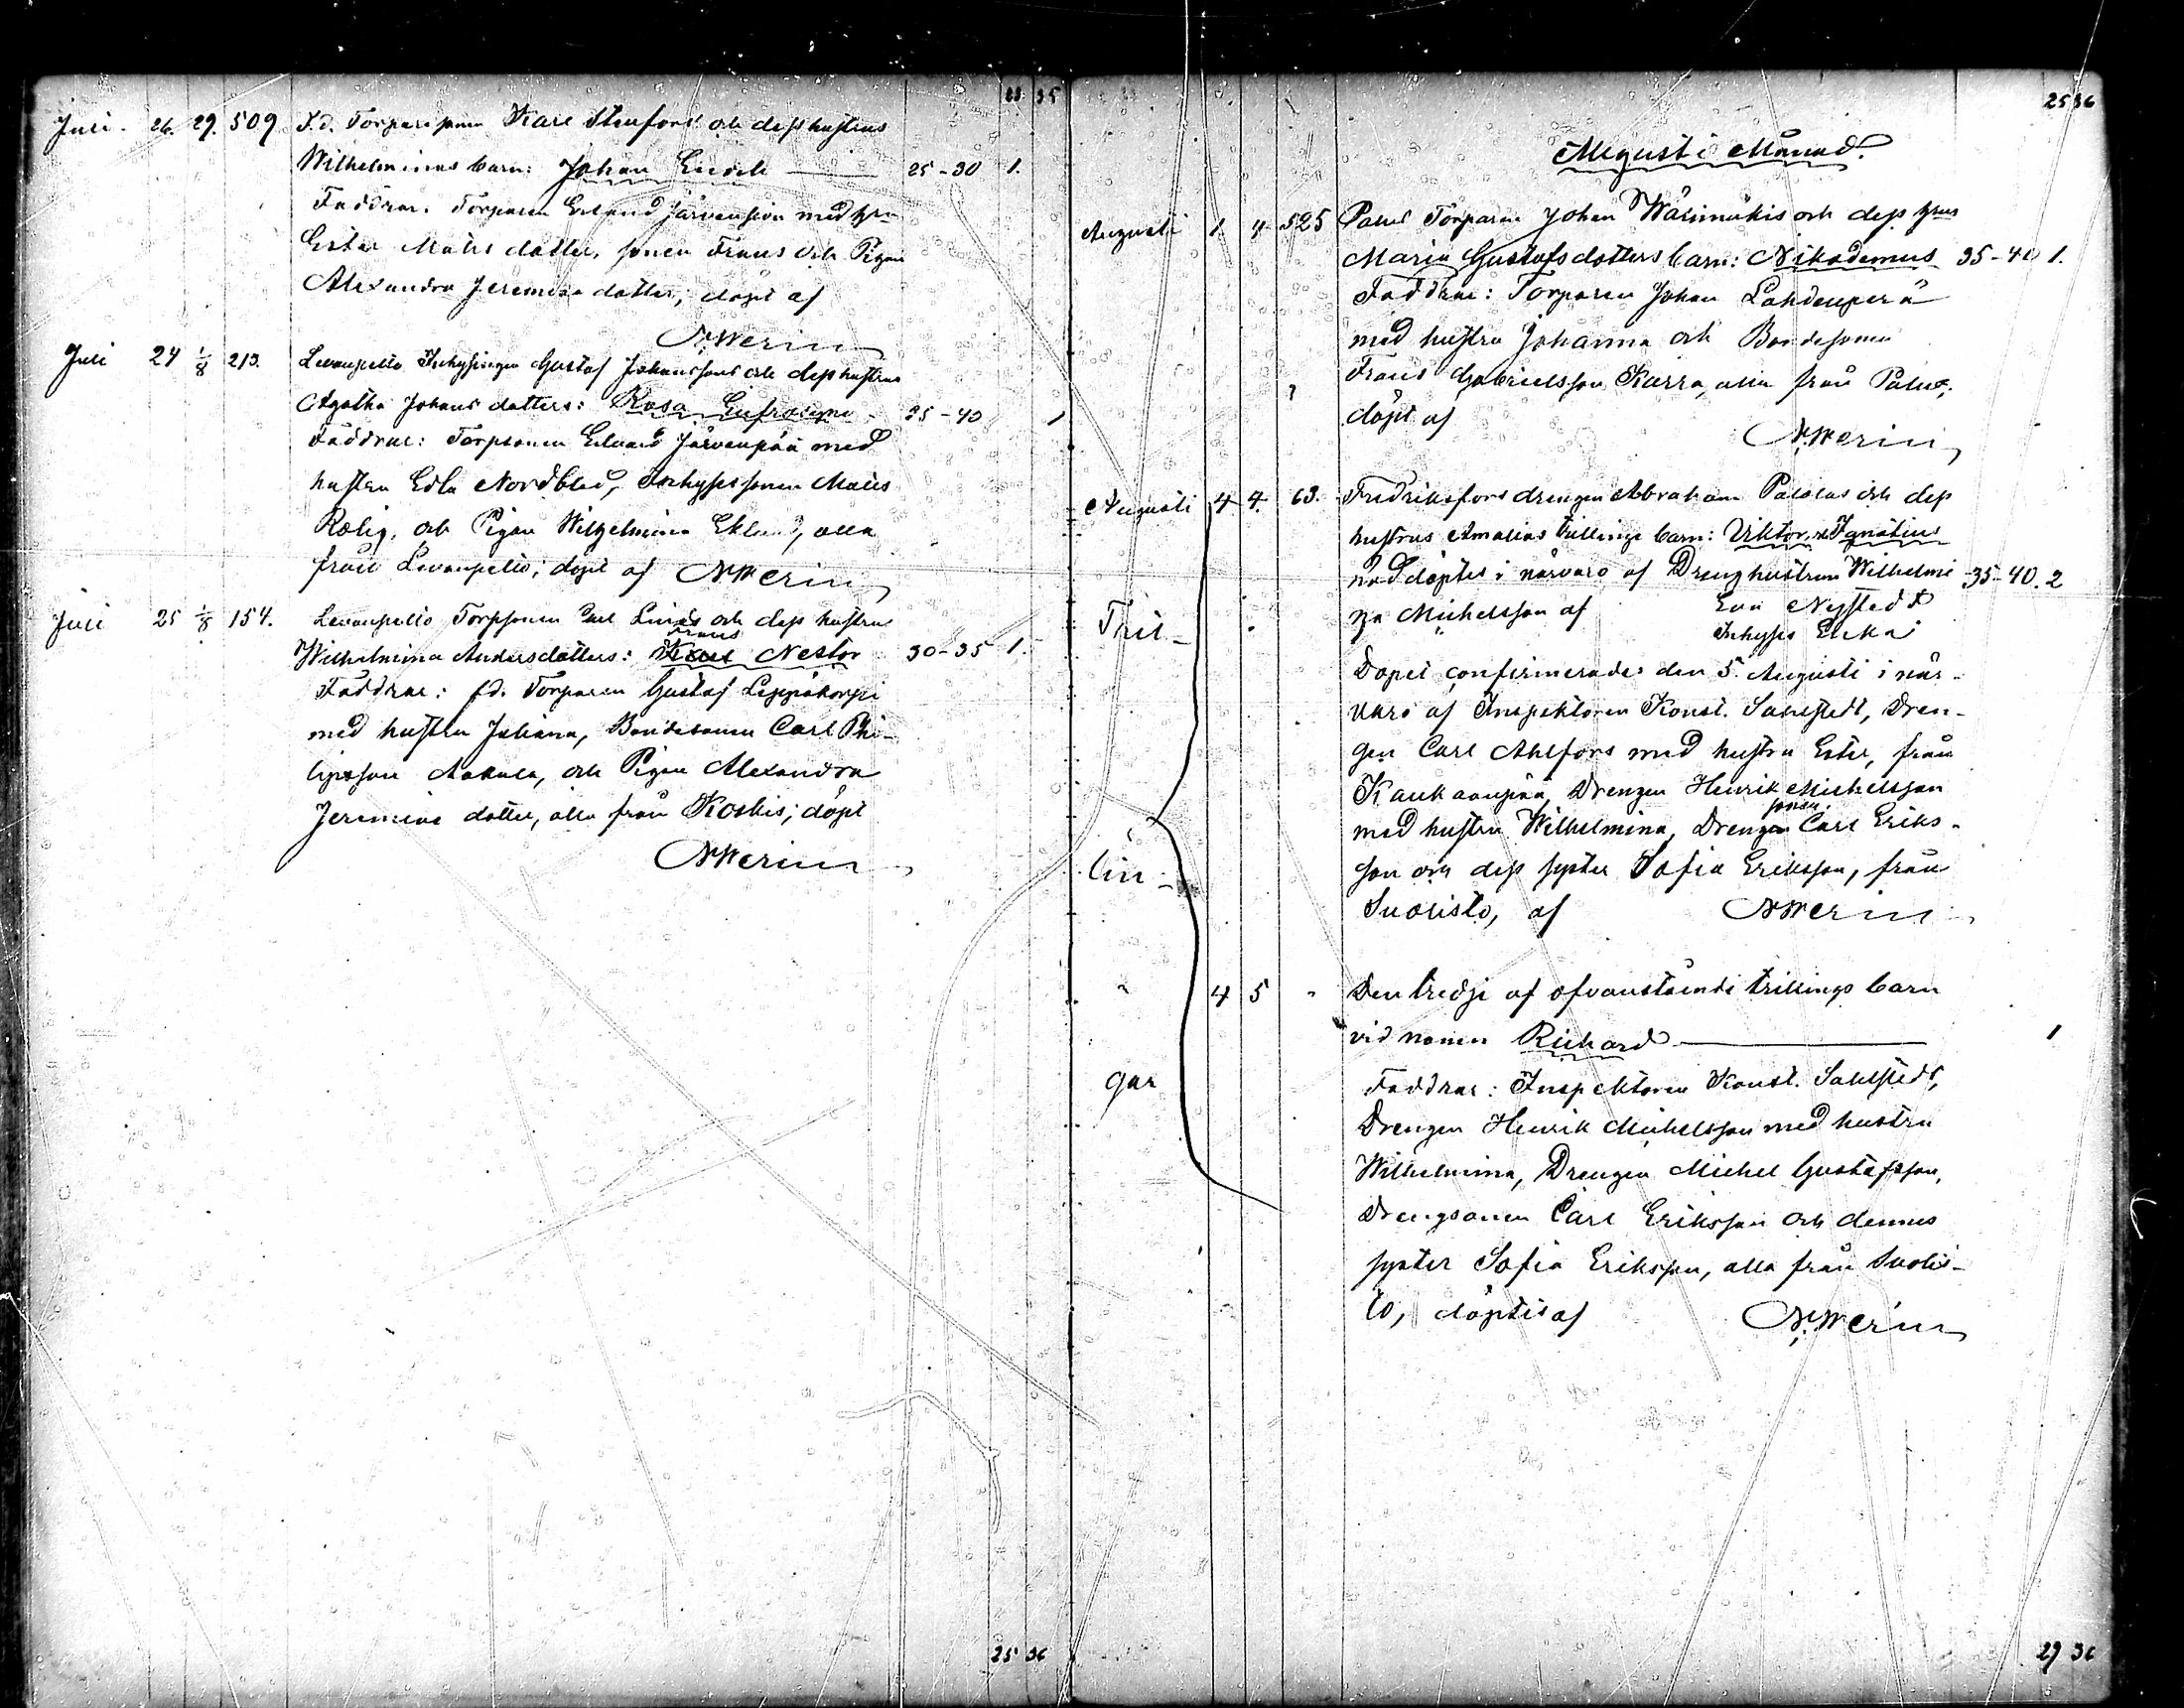 23 35
Juli 26. 29. 509 F.d. Torparesonen Karl Stenfors och dess hustrus
Wilhelminas barn: Johan Emil 25-30 1.
Faddrar: Torparen Erland Järvensivu med hru
Ester Matts dotter, sonen Frans och Pigan
Alexandra Jeremias dotter; döpt af
N. Werin
Juli 24 1/8 213. Levanpelto Inhysingen Gustaf Johanssons och dess hustrus
Agatha Johans dotters: Rosa Eufrosyne 35-40 1
Faddrar: Torpsonen Edvard Järvenpää med
hustru Edla Nordblad, Inhyses sonen Matts
Rolig, och Pigan Wilhelmina Eklund, alla
från Levanpelto; döpt af N. Werin
Juli 25 1/8 154. Levanpelto Torpsonen Karl Linds och dess hustrus
Frans
Wilhelmina Andersdotters: Karl Nestor 30-35 1.
Faddrar: f.d. Torparen Gustaf Leppäkorpi
med hustru Juliana, Bondesonen Carl Phi-
lipsson Aakula, och Pigan Alexandra
Jeremias dotter, alla från Koskis; döpt
N. Werin
25 36
25 36
Augusti Månad.
Augusti 1 4 525 Palus Torparen Johan Wärimäkis och dess hrus
Maria Gustafsdotters barn: Nikodemus 35-40 1.
Faddrar: Torparen Johan Lahdenperä
med hustru Johanna och Bondesonen
Frans Gabrielsson Karra, alla från Palus;
döpt af
N. Werin
Augusti 4 4. 63. Fredriksfors drengen Abraham Palolas och dess
hustrus Amalias trillings barn: Viktor o. Ignatius
nöddöptes i närvaro af Dreng hustrun Wilhelmi 35-40. 2
na Michelsson af Eva Nystedt
Tril- Inhyses Enka
Dopet confirmerades den 5. Augusti i när-
varo af Inspektoren Konst. Sahlstedt, Dren-
gen Carl Ahlfors med hustru Ester, från
Kaukaanpää, Drengen Henrik Michelsson
sonen
med hustru Wilhelmina, Drengen Carl Eriks-
lin- son och dess syster Sofia Eriksson, från
Suoristo, af N. Werin
" 4 5 " Den tredje af ofvanstående trillings barn
vid namn Richard 1
gar Faddrar: Inspektoren Konst. Sahlstedt,
Drengen Henrik Michelsson med hustru
Wilhelmina, Drengen Michel Gustafsson,
Drengsonen Carl Eriksson och dennes
syster Sofia Eriksson, alla från Suoris-
to, döptes af N. Werin
29 36